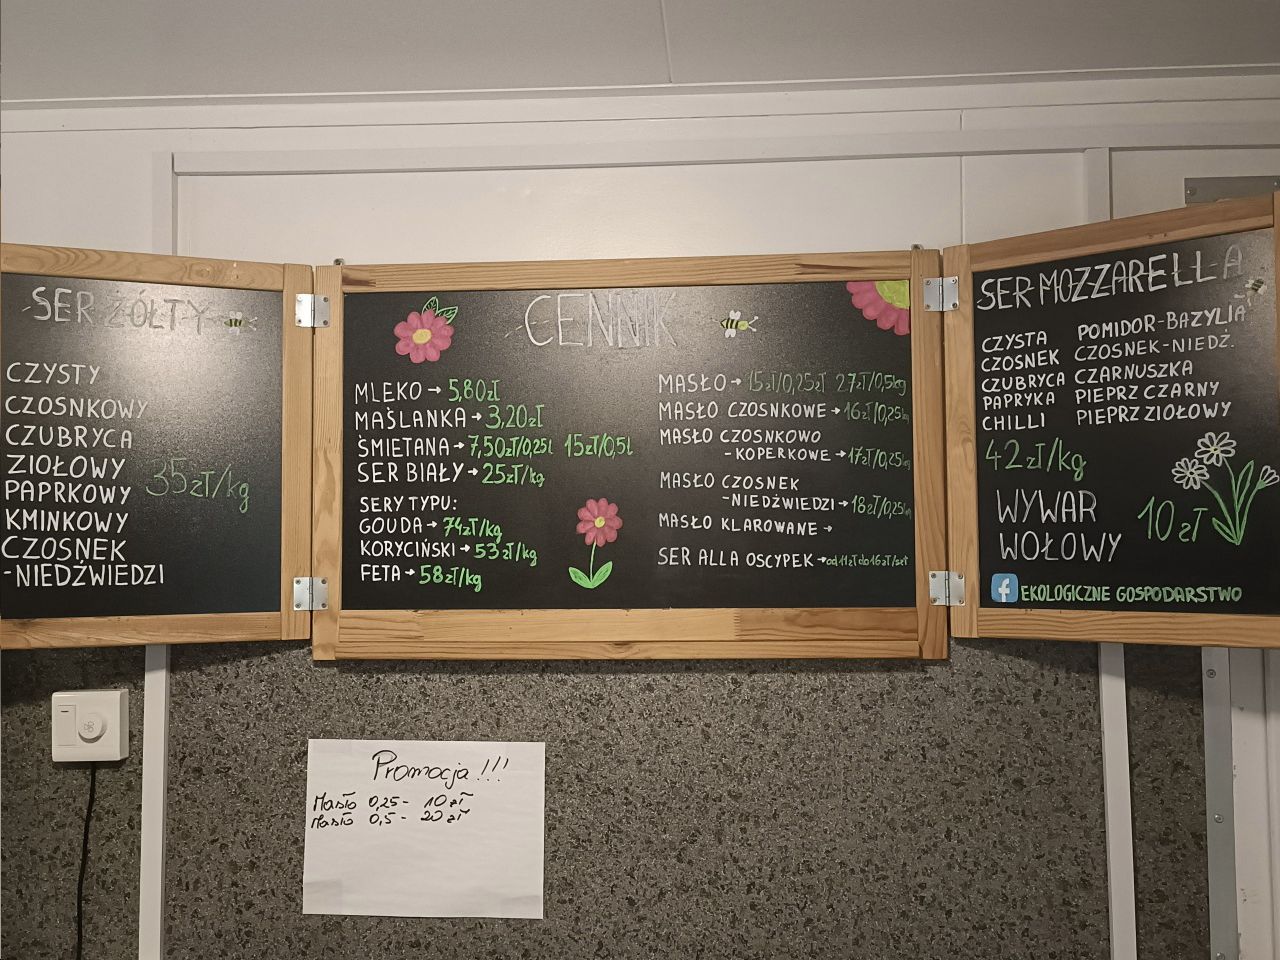 SER ŻÓŁTY
CZYSTY
CZOSNKOWY
CZUBRYCA
ZIOŁOWY
PAPRKOWY
KMINKOWY
CZOSNEK
-NIEDŹWIEDZI
35zł/kg
CENNIK
MLEKO → 5,80zł
MAŚLANKA → 3,20zł
ŚMIETANA → 7,50zł/0,25l 15zł/0,5l
SER BIAŁY → 25zł/kg
SERY TYPU:
GOUDA → 74zł/kg
KORYCIŃSKI → 53zł/kg
FETA → 58zł/kg
MASŁO → 15zł/0,25zł 27zł/0,5kg
MASŁO CZOSNKOWE → 16zł/0,25kg
MASŁO CZOSNKOWO
-KOPERKOWE → 17zł/0,25kg
MASŁO CZOSNEK
-NIEDŹWIEDZI → 18zł/0,25kg
MASŁO KLAROWANE →
SER ALLA OSCYPEK → od 11zł do 16zł/szt
SER MOZZARELLA
CZYSTA
CZOSNEK
CZUBRYCA
PAPRYKA
CHILLI
POMIDOR-BAZYLIA
CZOSNEK-NIEDŹ.
CZARNUSZKA
PIEPRZ CZARNY
PIEPRZ ZIOŁOWY
42zł/kg
WYWAR
WOŁOWY
10zł
f EKOLOGICZNE GOSPODARSTWO
Promocja!!!
Masło 0,25 - 10 zł
Masło 0,5 - 20 zł